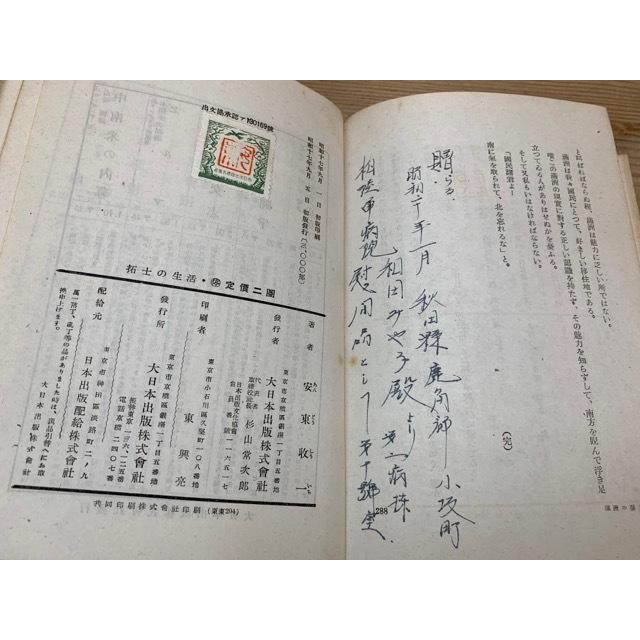 と叫ばねばならぬ程、滿洲は魅力に乏しい所ではない。
滿洲は我々國民にとつて、好ましい移住地である。
唯この滿洲の眞實に對する正しい認識を持たず、その魅力を知らずして、南方を睨んで浮き足
立つてる人がありはせぬかを憂ふる。
そして又私もいはなければならない。
「國民諸君よ！
南に氣を取られて、北を忘れるな」と。
（完）
贈らる
昭和二十年一月 秋田縣鹿角郡小坂町
相田みや子殿より
相陸軍病院慰問品として 第二病棟
第十號室
288
滿洲の
出文協承認ア190169號
昭和十七年九月一日 初版印刷
昭和十七年九月五日 初版發行（三、〇〇〇部）
拓士の生活・㊝定價二圓
著者 安東收一
東京市京橋區銀座一丁目五番地
發行者 大日本出版株式會社
代表者 取締役社長 杉山常次郎
日本出版文化協會
會員番號 一一六五一七
東京市小石川區久堅町一〇八番地
印刷者 東興亮
東京市京橋區銀座一丁目五番地
發行所 大日本出版株式會社
電話京橋二四〇七番
東京市神田區淡路町二ノ九
配給元 日本出版配給株式會社
萬一落丁、亂丁等の品がありましたら、良品引替へにお取
換申上げます。
大日本出版株式會社
共同印刷株式會社印刷（東東204）